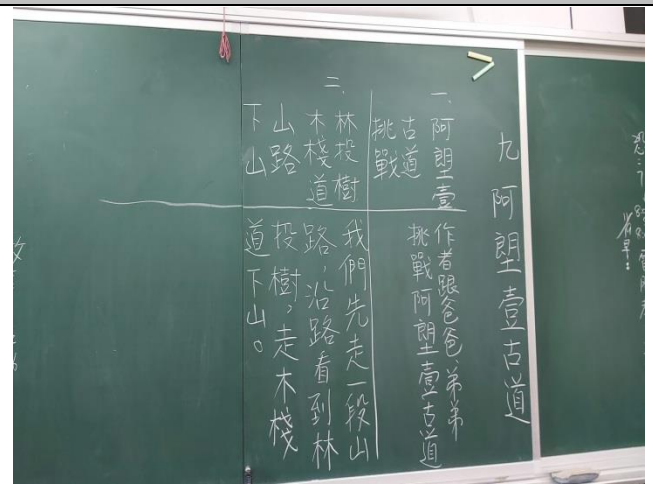 九 阿塱壹古道
一、阿塱壹
古道
挑戰
作者跟爸爸、弟弟
挑戰阿塱壹古道
二、
林投樹
木棧道
山路
下山
我們先走一段山
路，沿路看到林
投樹，走木棧
道下山。